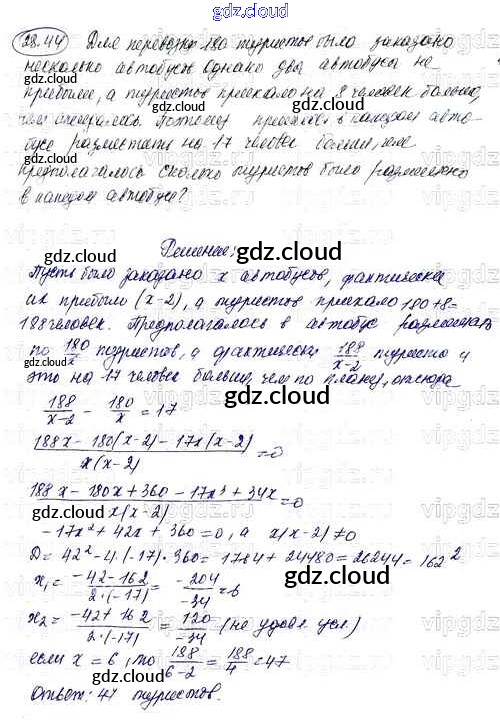 gdz.cloud
28.44 Для перевозки 180 туристов было заказано
несколько автобусов. Однако два автобуса не
прибыли, а туристов приехало на 8 человек больше,
чем ожидалось. Поэтому пришлось в каждом авто-
бусе разместить на 17 человек больше, чем
предполагалось. Сколько туристов было размещено
в каждом автобусе?
Решение:
Пусть было заказано x автобусов, фактически
их прибыли (x-2), а туристов приехало 180+8=
188 человек. Предполагалось в автобус размещать
по 180/x туристов, а фактически 188/(x-2) туриста и
это на 17 человек больше, чем по плану, отсюда
188/(x-2) - 180/x = 17
(188x - 180(x-2) - 17x(x-2))/(x(x-2)) = 0
(188x - 180x + 360 - 17x² + 34x)/(x(x-2)) = 0
-17x² + 42x + 360 = 0, а x(x-2) ≠ 0
D = 42² - 4·(-17)·360 = 1784 + 24480 = 26244 = 162²
x₁ = (-42-162)/(2·(-17)) = -204/-34 = 6
x₂ = (-42+162)/(2·(-17)) = 120/-34 (не удовл. усл.)
если x = 6, то 188/(6-2) = 188/4 = 47
Ответ: 47 туристов.
gdz.cloud